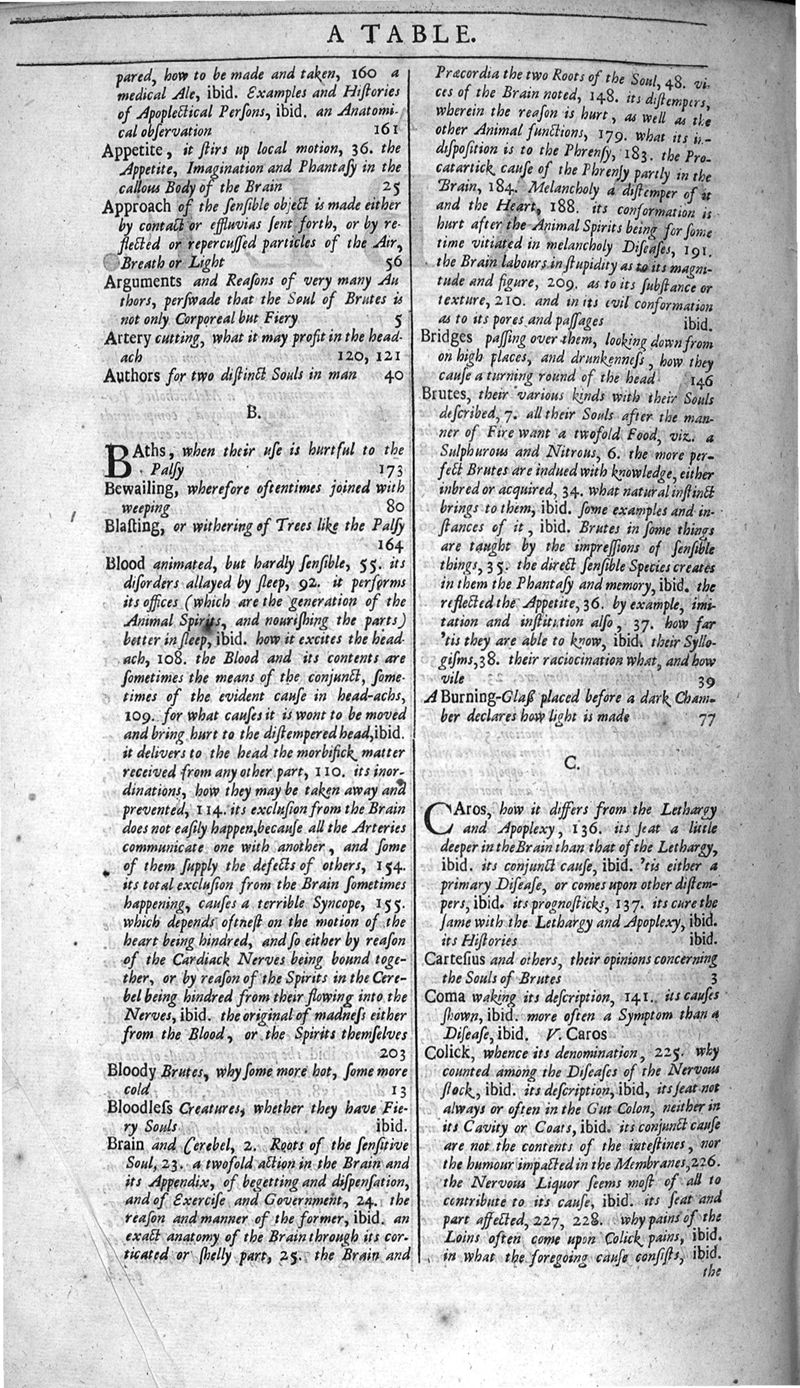 A TABLE.
pared, how to be made and taken, 160 a
medical Ale, ibid. Examples and Hiſtories
of Apoplectical Perſons, ibid. an Anatomi-
cal obſervation 161
Appetite, it ſtirs up local motion, 36. the
Appetite, Imagination and Phantaſy in the
callous Body of the Brain 25
Approach of the ſenſible object is made either
by contact or effluvias ſent forth, or by re-
flected or repercuſſed particles of the Air,
Breath or Light 56
Arguments and Reaſons of very many Au
thors, perſwade that the Soul of Brutes is
not only Corporeal but Fiery 5
Artery cutting, what it may profit in the head-
ach 120, 121
Authors for two diſtinct Souls in man 40
B.
BAths, when their uſe is hurtful to the
Palſy 173
Bewailing, wherefore oftentimes joined with
weeping 80
Blaſting, or withering of Trees like the Palſy
164
Blood animated, but hardly ſenſible, 55. its
diſorders allayed by ſleep, 92. it performs
its offices (which are the generation of the
Animal Spirits, and nouriſhing the parts)
better in ſleep, ibid. how it excites the head-
ach, 108. the Blood and its contents are
ſometimes the means of the conjunct, ſome-
times of the evident cauſe in head-achs,
109. for what cauſes it is wont to be moved
and bring hurt to the diſtempered head, ibid.
it delivers to the head the morbifick matter
received from any other part, 110. its inor-
dinations, how they may be taken away and
prevented, 114. its excluſion from the Brain
does not eaſily happen, becauſe all the Arteries
communicate one with another, and ſome
of them ſupply the defects of others, 154.
its total excluſion from the Brain ſometimes
happening, cauſes a terrible Syncope, 155.
which depends oftneſt on the motion of the
heart being hindred, and ſo either by reaſon
of the Cardiack Nerves being bound toge-
ther, or by reaſon of the Spirits in the Cere-
bel being hindred from their flowing into the
Nerves, ibid. the original of madneſs either
from the Blood, or the Spirits themſelves
203
Bloody Brutes, why ſome more hot, ſome more
cold 13
Bloodleſs Creatures, whether they have Fie-
ry Souls ibid.
Brain and Cerebel, 2. Roots of the ſenſitive
Soul, 23. a twofold action in the Brain and
its Appendix, of begetting and diſpenſation,
and of Exerciſe and Government, 24. the
reaſon and manner of the former, ibid. an
exact anatomy of the Brain through its cor-
ticated or ſhelly part, 25. the Brain and
Præcordia the two Roots of the Soul, 48. vi-
ces of the Brain noted, 148. its diſtempers,
wherein the reaſon is hurt, as well as the
other Animal functions, 179. what its in-
diſpoſition is to the Phrenſy, 183. the Pro-
catartick cauſe of the Phrenſy partly in the
Brain, 184. Melancholy a diſtemper of it
and the Heart, 188. its conformation is
hurt after the Animal Spirits being for ſome
time vitiated in melancholy Diſeaſes, 191.
the Brain labours in ſtupidity as to its magni-
tude and figure, 209. as to its ſubſtance or
texture, 210. and in its evil conformation
as to its pores and paſſages ibid.
Bridges paſſing over them, looking down from
on high places, and drunkenneſs, how they
cauſe a turning round of the head 146
Brutes, their various kinds with their Souls
deſcribed, 7. all their Souls after the man-
ner of Fire want a twofold Food, viz. a
Sulphurous and Nitrous, 6. the more per-
fect Brutes are indued with knowledge, either
inbred or acquired, 34. what natural inſtinct
brings to them, ibid. ſome examples and in-
ſtances of it, ibid. Brutes in ſome things
are taught by the impreſſions of ſenſible
things, 35. the direct ſenſible Species creates
in them the Phantaſy and memory, ibid. the
reflected the Appetite, 36. by example, imi-
tation and inſtitution alſo, 37. how far
'tis they are able to know, ibid. their Syllo-
giſms, 38. their raciocination what, and how
vile 39
A Burning-Glaſs placed before a dark Cham-
ber declares how light is made 77
C.
CAros, how it differs from the Lethargy
and Apoplexy, 136. its ſeat a little
deeper in the Brain than that of the Lethargy,
ibid. its conjunct cauſe, ibid. 'tis either a
primary Diſeaſe, or comes upon other diſtem-
pers, ibid. its prognoſticks, 137. its cure the
ſame with the Lethargy and Apoplexy, ibid.
its Hiſtories ibid.
Carteſius and others, their opinions concerning
the Souls of Brutes 3
Coma waking its deſcription, 141. its cauſes
ſhown, ibid. more often a Symptom than a
Diſeaſe, ibid. V. Caros
Colick, whence its denomination, 225. why
counted among the Diſeaſes of the Nervous
ſtock, ibid. its deſcription, ibid, its ſeat not
always or often in the Gut Colon, neither in
its Cavity or Coats, ibid. its conjunct cauſe
are not the contents of the inteſtines, nor
the humour impacted in the Membranes, 226.
the Nervous Liquor ſeems moſt of all to
contribute to its cauſe, ibid. its ſeat and
part affected, 227, 228. why pains of the
Loins often come upon Colick pains, ibid.
in what the foregoing cauſe conſiſts, ibid.
the